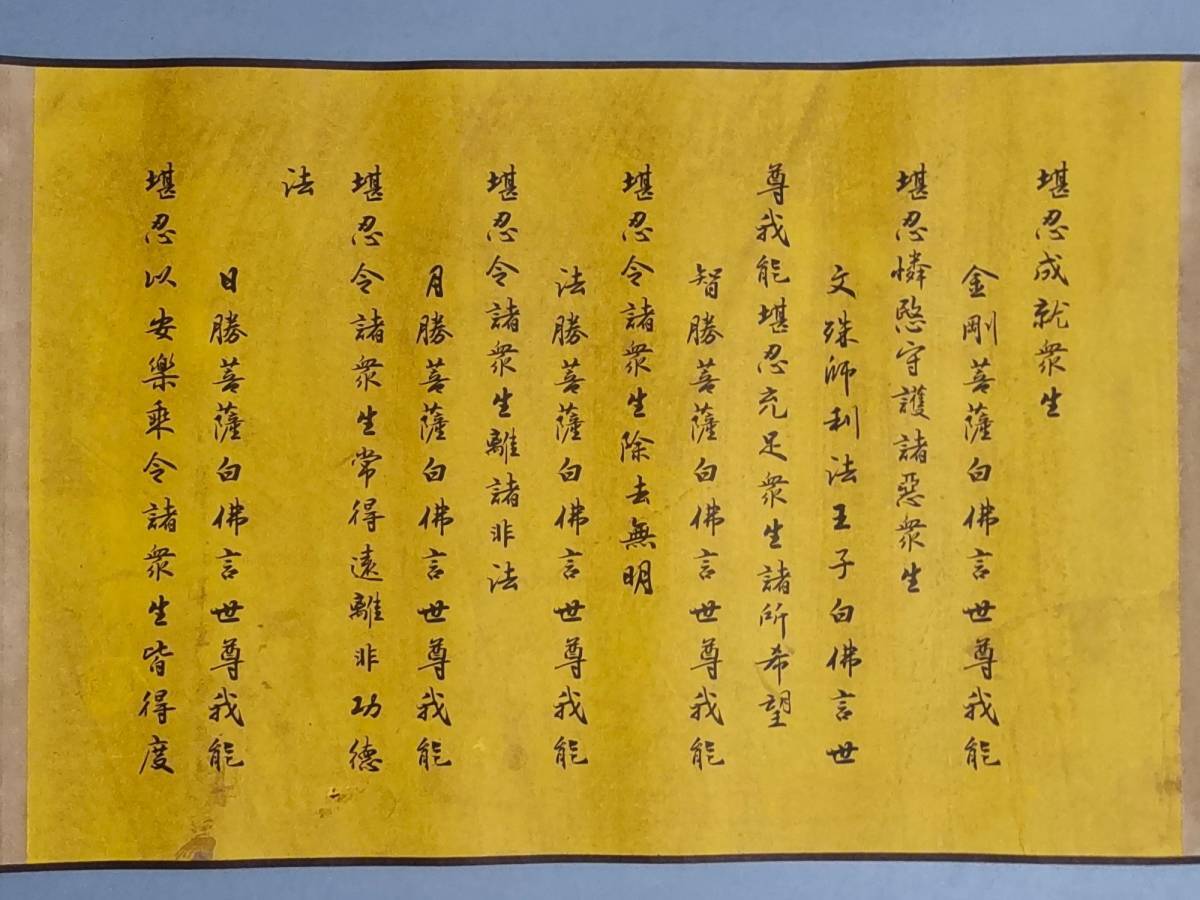 堪忍成就眾生
金剛菩薩白佛言世尊我能
堪忍憐愍守護諸惡眾生
文殊師利法王子白佛言世
尊我能堪忍充足眾生諸所希望
智勝菩薩白佛言世尊我能
堪忍令諸眾生除去無明
法勝菩薩白佛言世尊我能
堪忍令諸眾生離諸非法
月勝菩薩白佛言世尊我能
堪忍令諸眾生常得遠離非功德
法
日勝菩薩白佛言世尊我能
堪忍以安樂乘令諸眾生皆得度